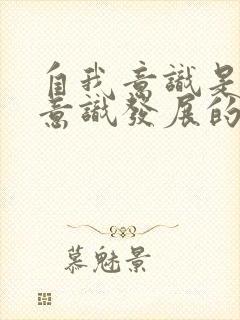 自我意識是
意識發展的
慕魅景